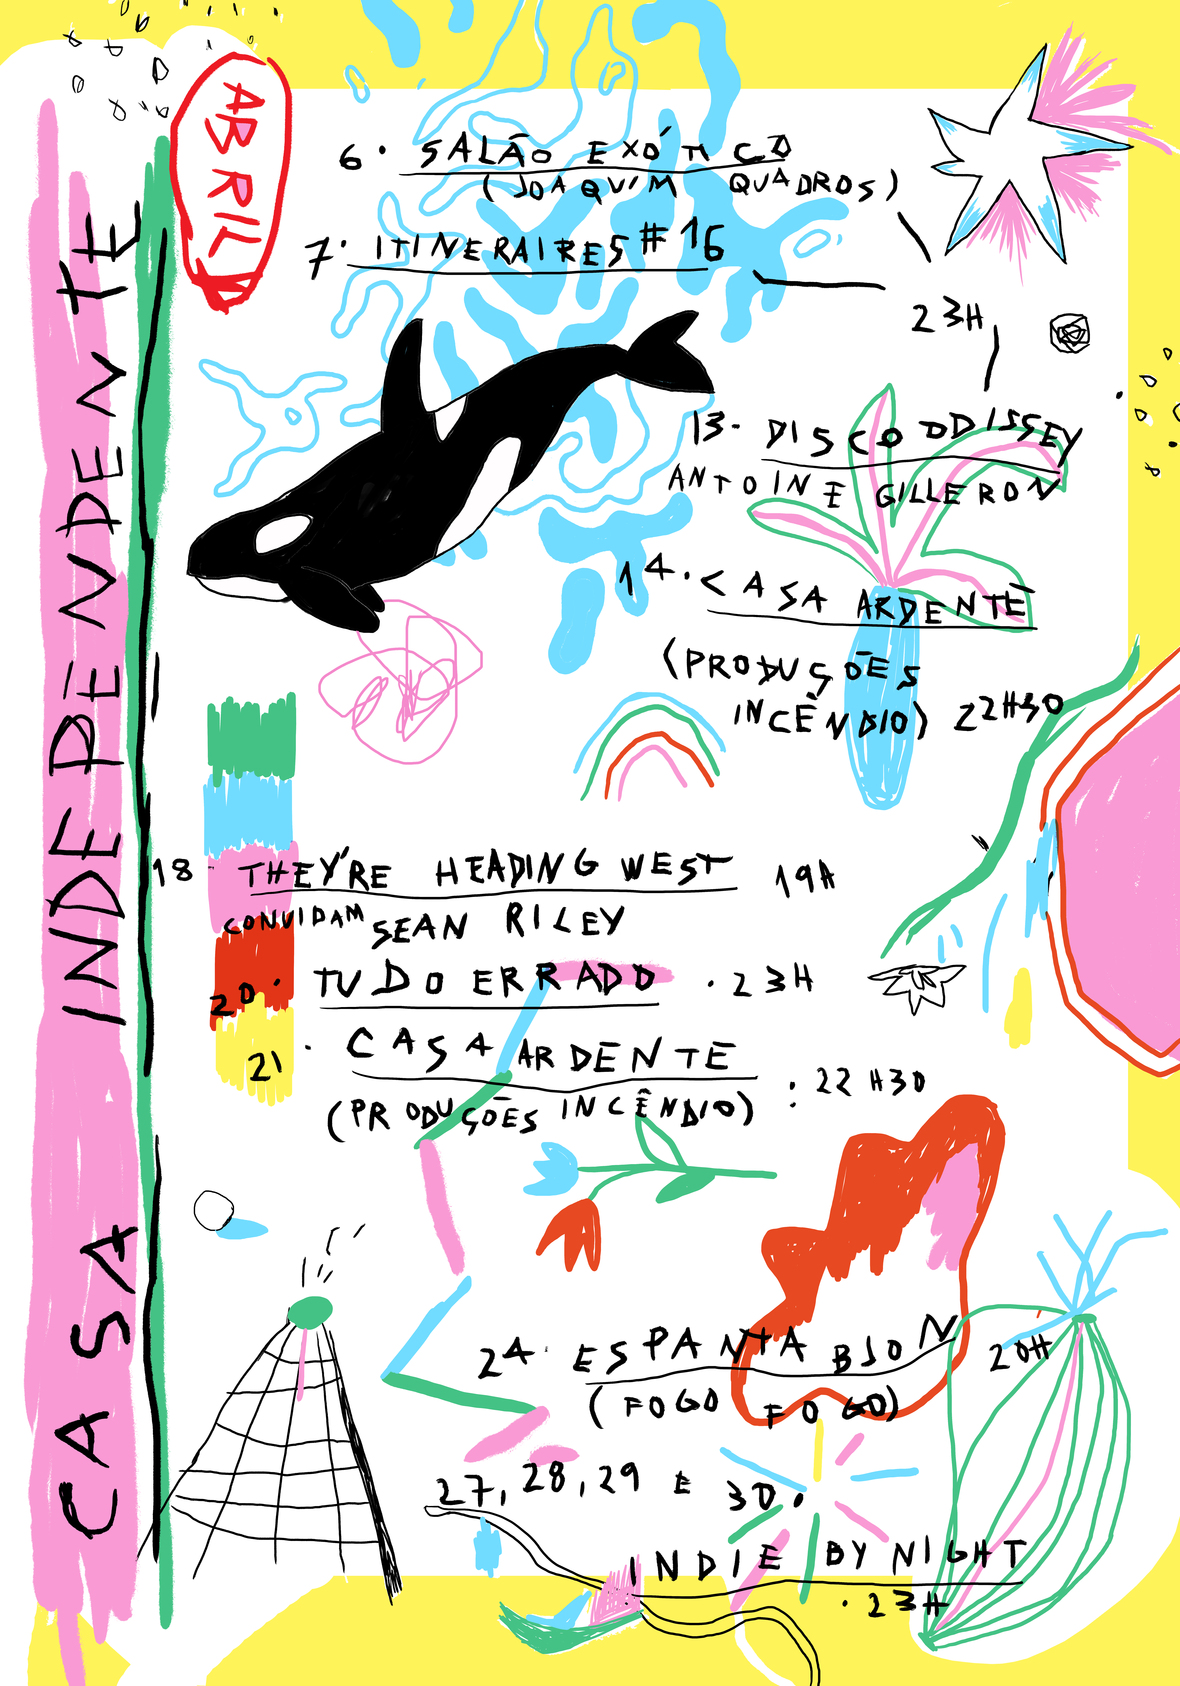 CASA INDEPENDENTE
ABRIL
6. SALÃO EXÓTICO
(JOAQUIM QUADROS)
7. ITINERAIRES #16
23H
13. DISCODDISSEY
ANTOINE GILLERON
14. CASA ARDENTE
(PRODUÇÕES
INCÊNDIO) 22H30
18 THEY'RE HEADING WEST 19H
CONVIDAM SEAN RILEY
20. TUDO ERRADO . 23H
21. CASA ARDENTE : 22H30
(PRODUÇÕES INCÊNDIO)
24. ESPANTA BJON 20H
(FOGO FOGO)
27, 28, 29 E 30.
INDIE BY NIGHT
. 23H